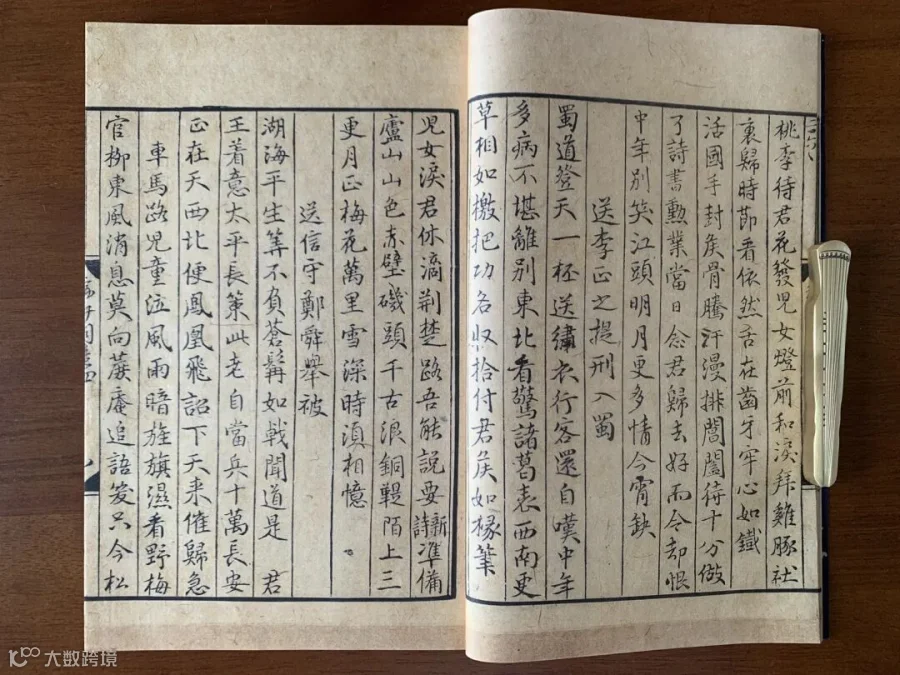 桃李待君花發兒女燈前和淚拜雞豚社
裏歸時節看依然舌在齒牙牢心如鐵
活國手封侯骨騰汗漫排閶闔待十分做
了詩書勳業當日念君歸去好而今却恨
中年別笑江頭明月更多情今宵缺
送李正之提刑入蜀
蜀道登天一杯送繡衣行客還自嘆中年
多病不堪離別東北看驚諸葛表西南更
草相如檄把功名收拾付君侯如椽筆
兒女淚君休滴荆楚路吾能說要新詩準備
廬山山色赤壁磯頭千古浪銅鞮陌上三
更月正梅花萬里雪深時須相憶
送信守鄭舜舉被
湖海平生算不負蒼髯如戟聞道是 君
王着意太平長策此老自當兵十萬長安
正在天西北便鳳凰飛詔下天來催歸急
車馬路兒童泣風雨暗旌旗濕看野梅
官柳東風消息莫向蔗庵追語笑只今松
大数跨境